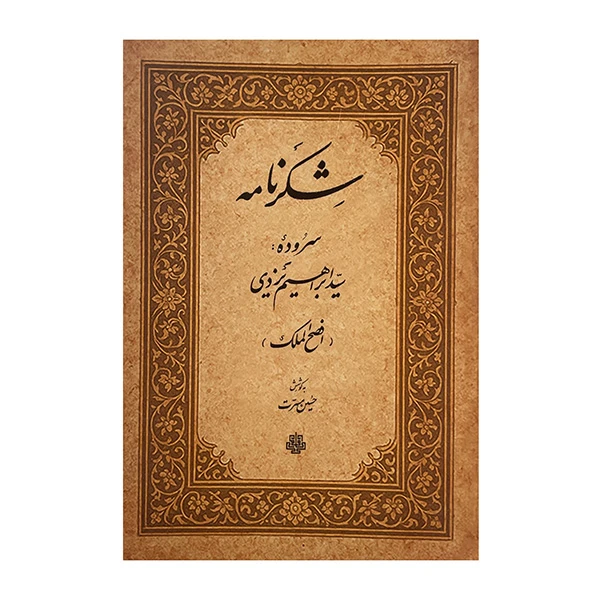 شِکَرنامه
سرودهٔ:
سیّد ابراهیم یزدی
(افصح الملک)
به کوشش
حسین مسرّت